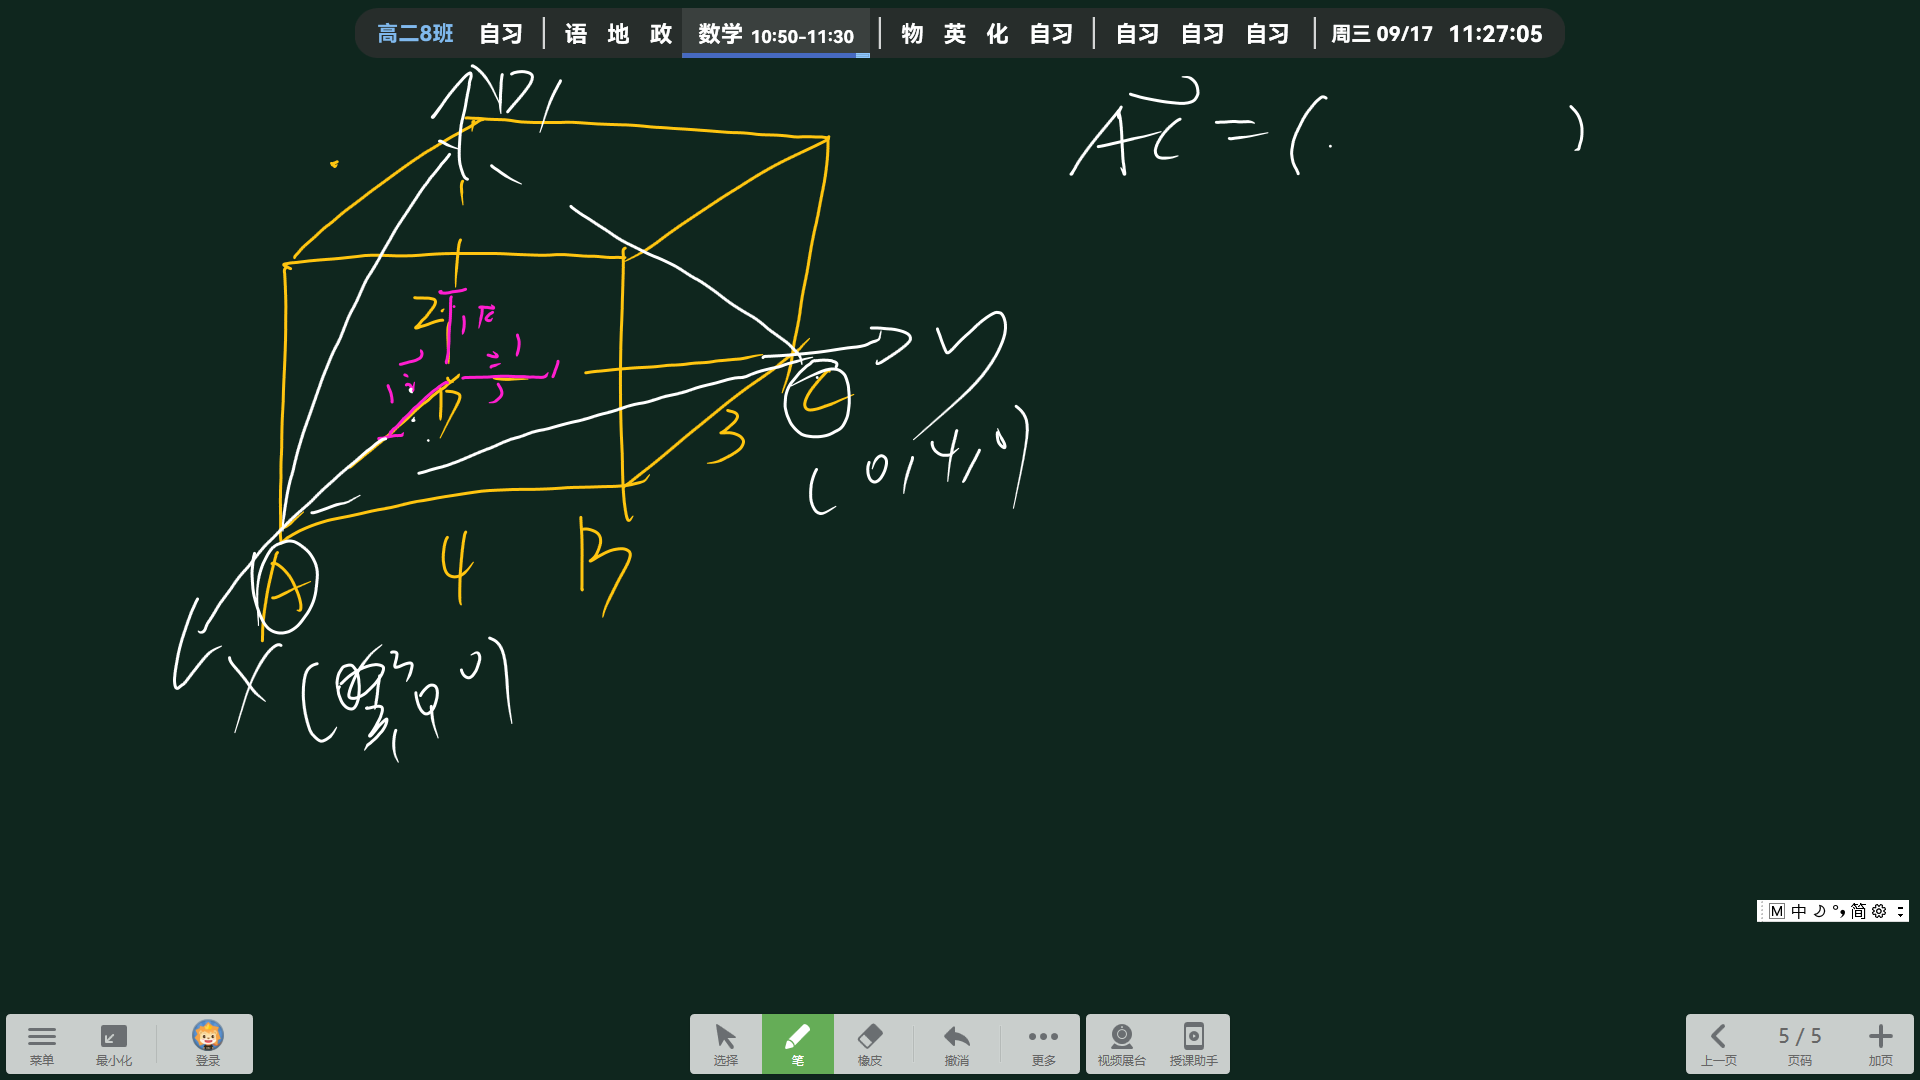 高二8班 自习 | 语 地 政 数学 10:50-11:30 | 物 英 化 自习 | 自习 自习 自习 | 周三 09/17 11:27:05
D1
AC = ( )
2
y
C
3
(0,4,0)
A
4
B
x
M 中 简
菜单 最小化 登录 选择 笔 橡皮 撤消 更多 视频展台 授课助手 上一页 5 / 5 页码 加页